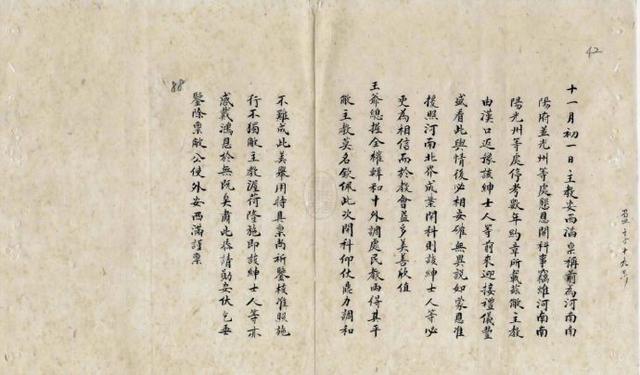 42
十一月初一日主教安西滿稟稱前為河南南
陽府並光州等處懇恩開科事竊維河南南
陽光州等處停考數年約章所載茲敝主教
由漢口近臻該紳士人等前來迎接禮儀豐
盛看此輿情後必相安確無異說如蒙恩准
援照河南北界成案開科則該紳士人等必
更為相信而於教會益多美善欣值
王爺總握全權輯和中外調處民教兩得其平
敝主教莫名欽佩此次開科仰仗鼎力調和
不難成此美舉用特具稟尚祈鑒核准照施
行不獨敝主教渥荷隆施即該紳士人等亦
感戴鴻恩於無既矣肅此恭請勛安伏乞垂
鑒除稟敝公使外安西滿謹稟
88